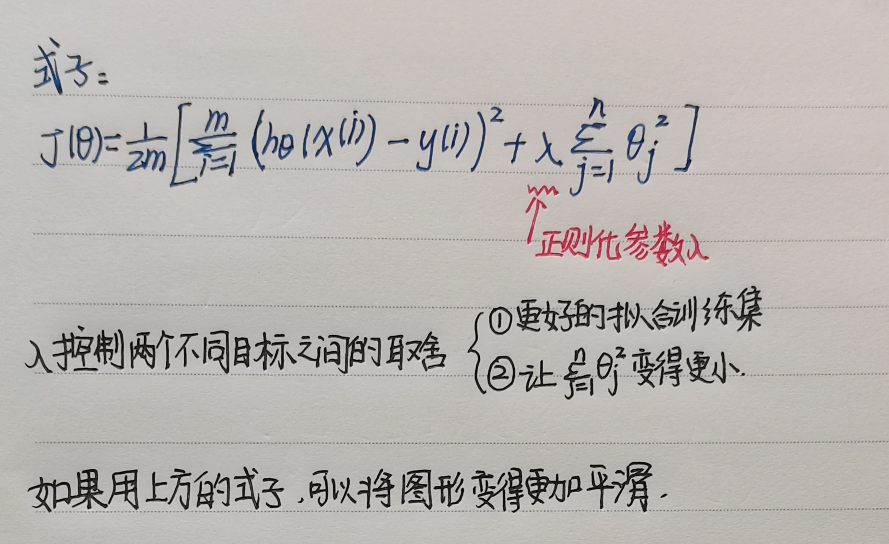 式子:
J(θ)=1/2m[∑_{i=1}^{m}(hθ(x(i))-y(i))²+λ∑_{j=1}^{n}θ_j²]
正则化参数λ
λ控制两个不同目标之间的取舍
①更好的拟合训练集
②让∑_{j=1}^{n}θ_j²变得更小.
如果用上方的式子,可以将图形变得更加平滑.